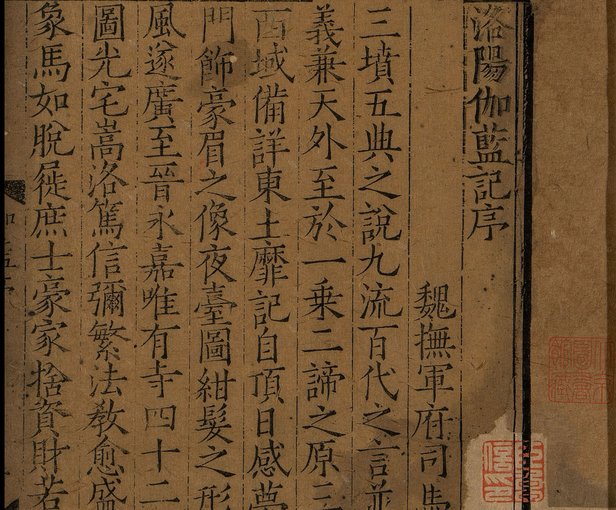 洛陽伽藍記序
魏撫軍府司馬
三墳五典之說九流百代之言並
義兼天外至於一乗二諦之原三
西域備詳東土靡記自頂日感夢
門飾豪眉之像夜臺圖紺髮之形
風遂廣至晉永嘉唯有寺四十二
圖光宅嵩洛篤信彌繁法教愈盛
象馬如脫屣庶士豪家捨資財若